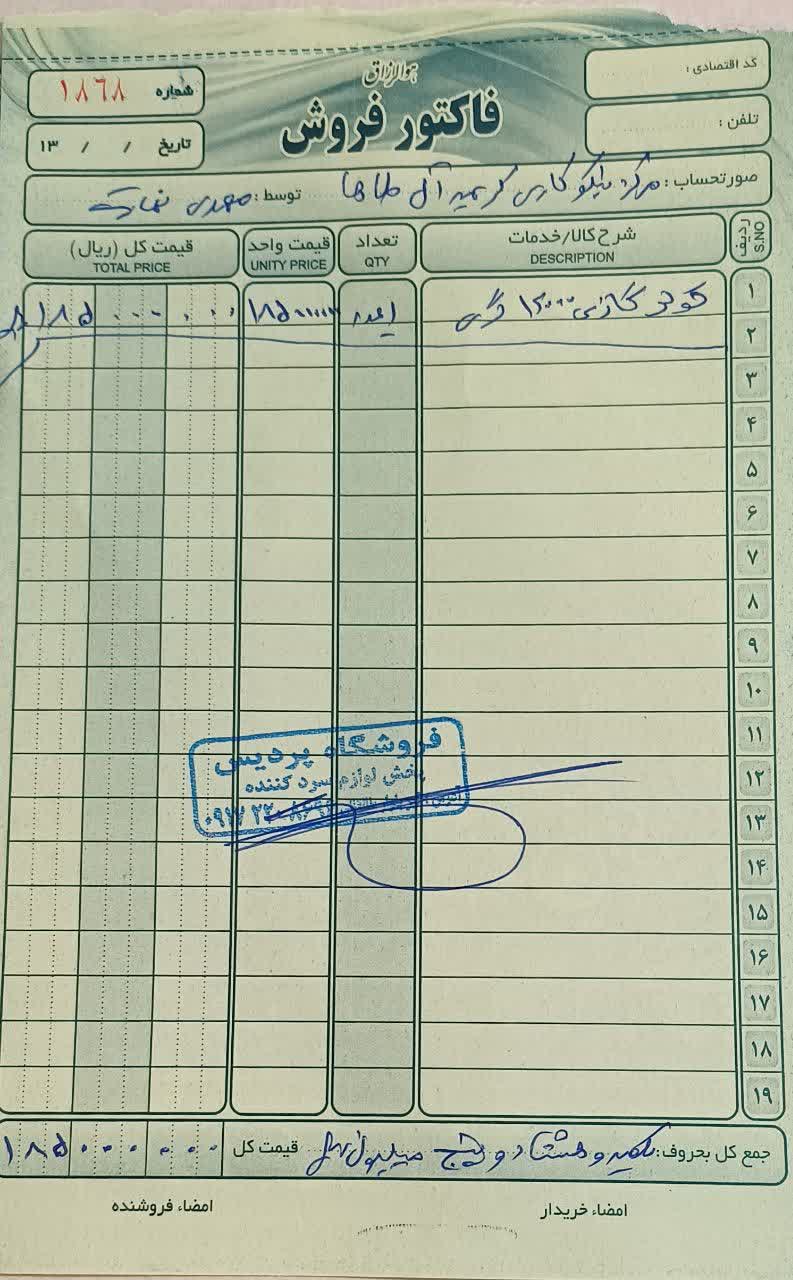 هوالرزاق
فاکتور فروش
شماره ۱۸۶۸
تاریخ / / ۱۳
کد اقتصادی :
تلفن :
صورتحساب : مرکز نیکوکاری کریمه آل طاها توسط : مهدی
ردیف S.NO
شرح کالا/خدمات DESCRIPTION
تعداد QTY
قیمت واحد UNITY PRICE
قیمت کل (ریال) TOTAL PRICE
۱ کولر گازی ۱۲۰۰۰ گری ۱عدد ۱۸۵۰۰۰۰۰۰ ۱۸۵۰۰۰۰۰۰
۲
۳
۴
۵
۶
۷
۸
۹
۱۰
۱۱
۱۲
۱۳
۱۴
۱۵
۱۶
۱۷
۱۸
۱۹
فروشگاه پردیس
پخش لوازم سرد کننده
جمع کل بحروف: یکصد و هشتاد و پنج میلیون ریال قیمت کل ۱۸۵۰۰۰۰۰۰
امضاء خریدار
امضاء فروشنده